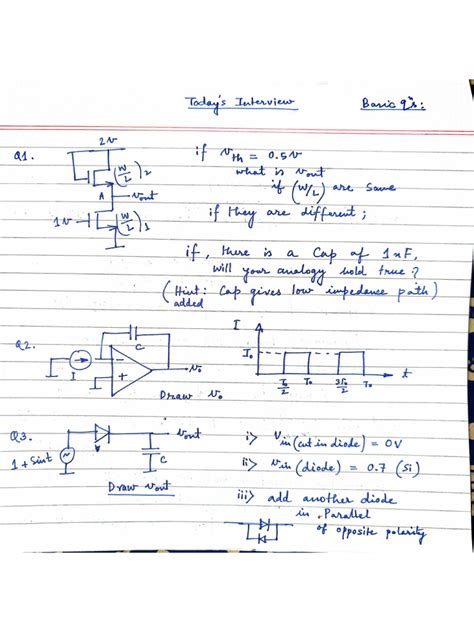 Today's Interview
Basic q's:
Q1.
2v
(W/L)2
A
vout
1v
(W/L)1
if vth = 0.5v
what is vout
if (W/L) are same
if they are different;
if, there is a cap of 1nF,
will your analogy hold true?
(Hint: Cap gives low impedance path)
added
Q2.
C
I
-
+
vo
Draw vo
I
Io
To/2
To
3To/2
To
t
Q3.
1+sint
vout
C
Draw vout
i> vin (cut in diode) = 0V
ii> vin (diode) = 0.7 (Si)
iii> add another diode
in Parallel
of opposite polarity